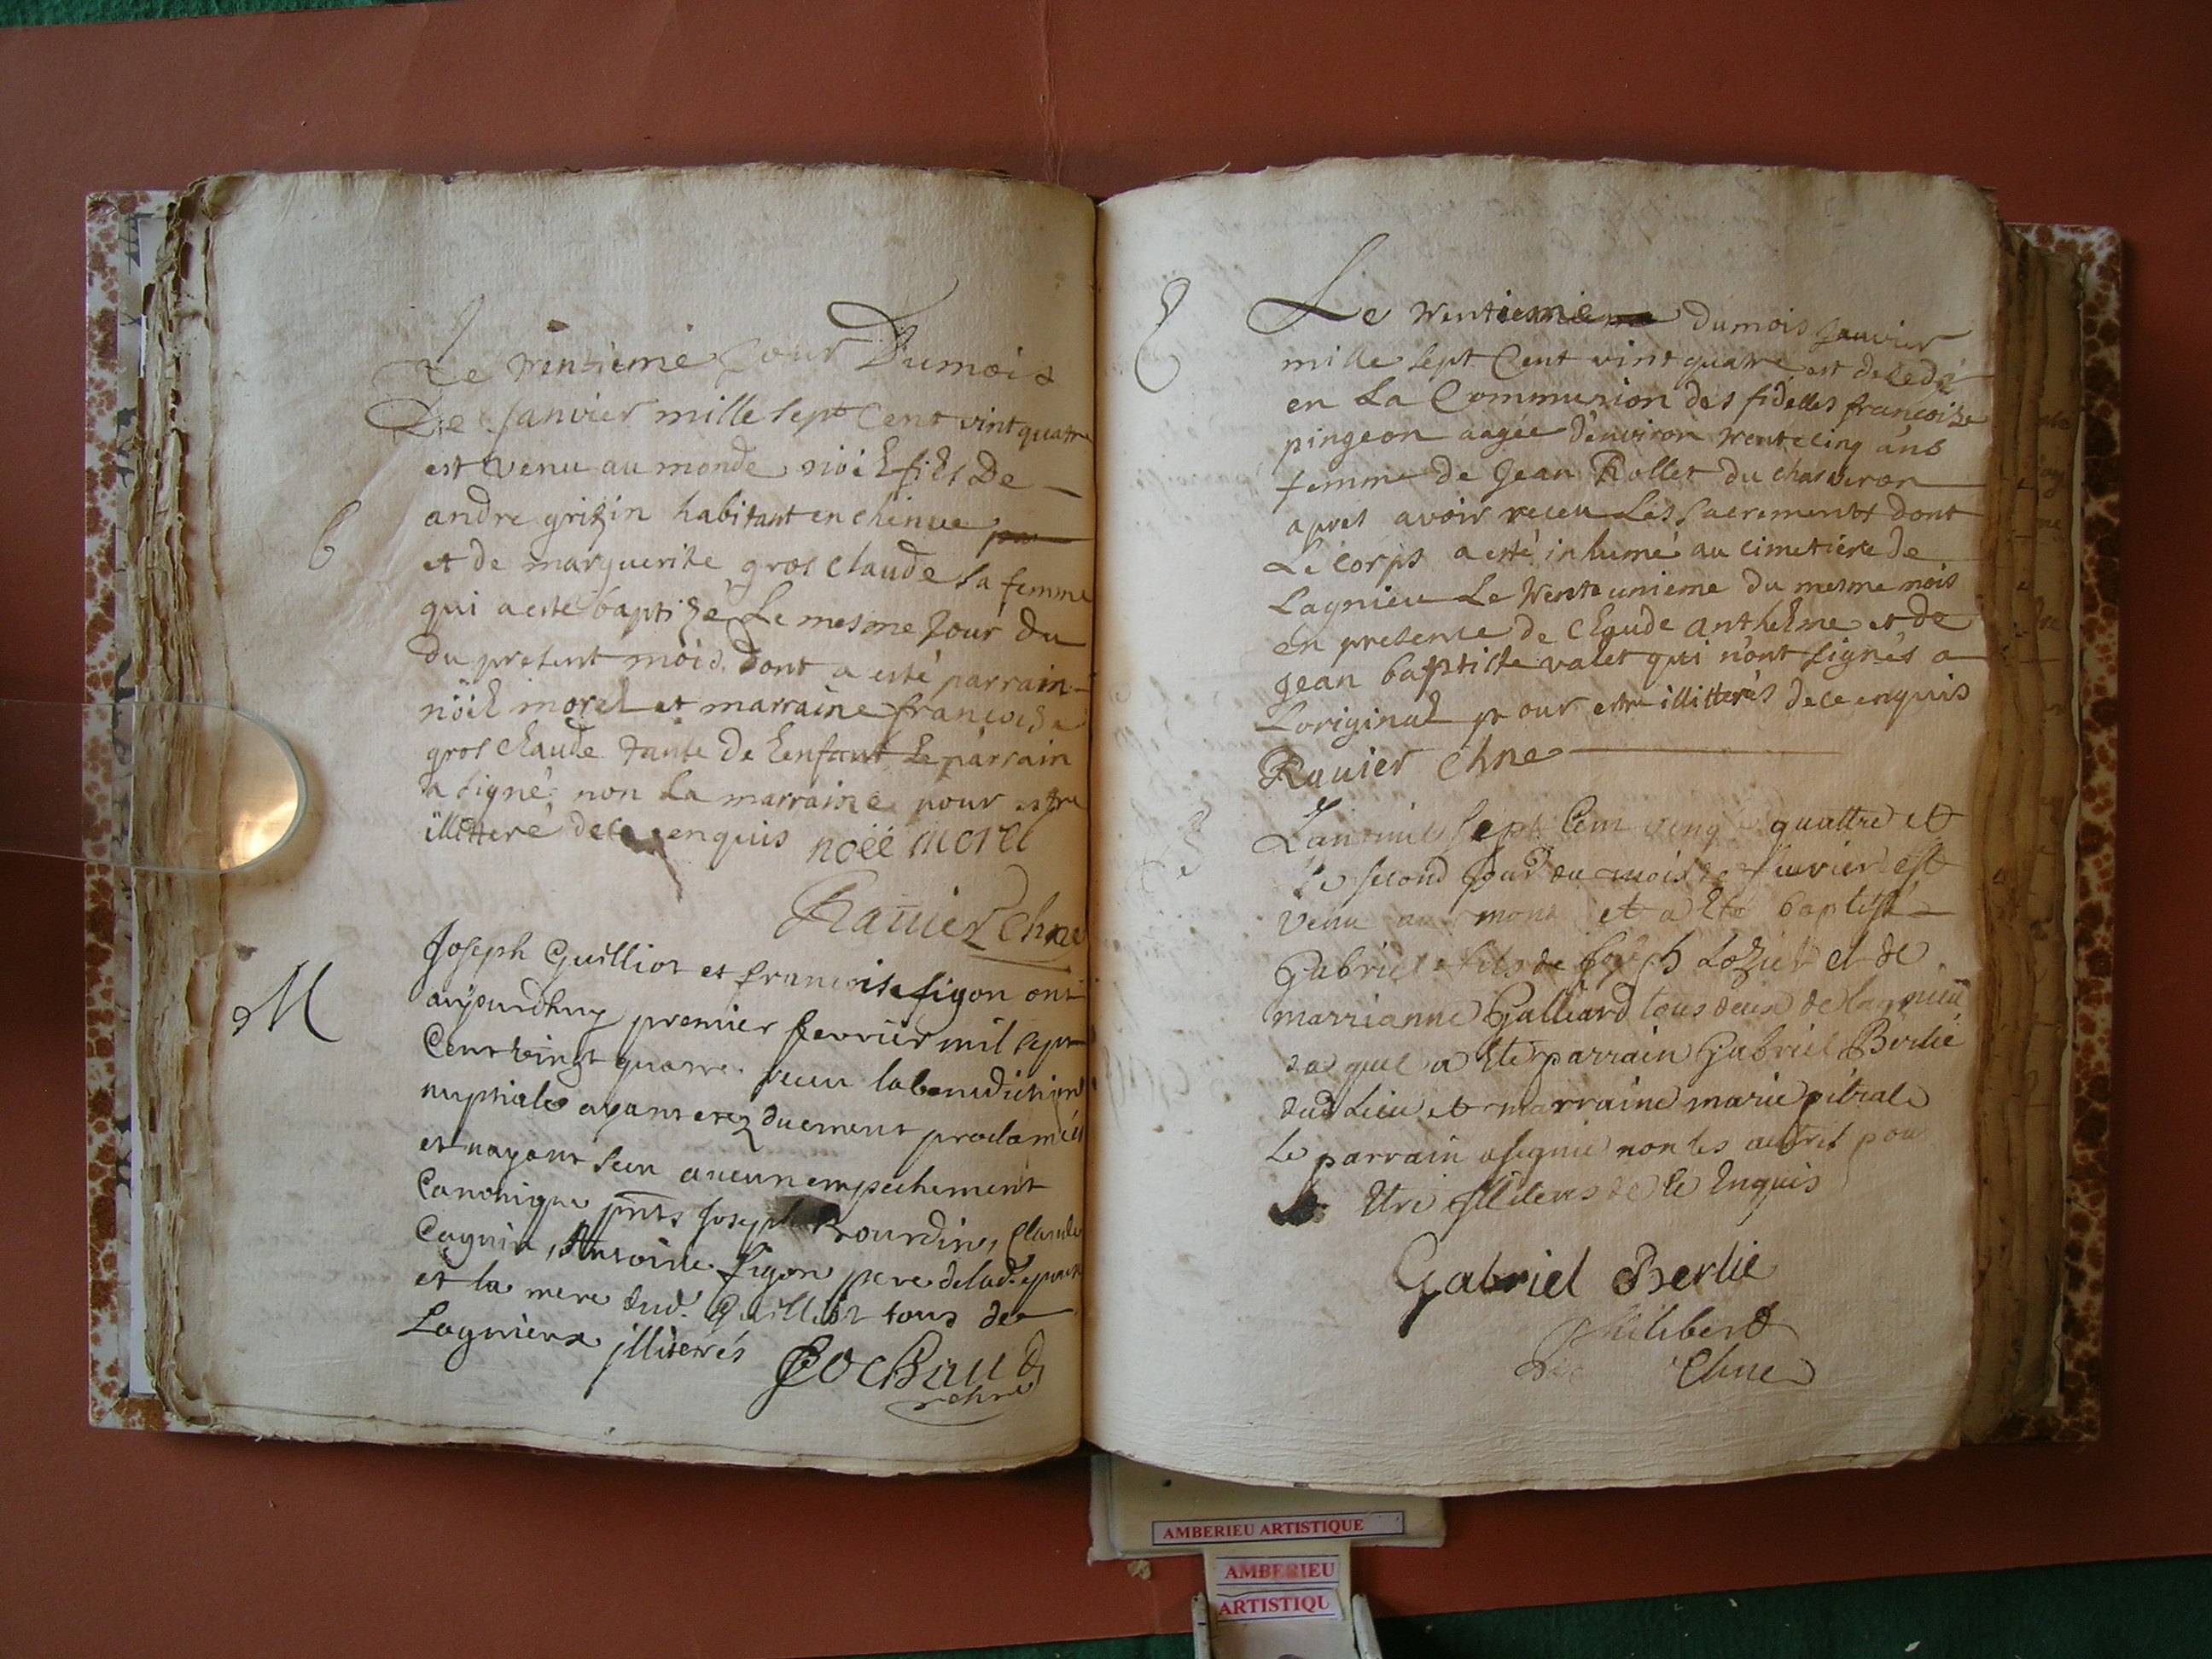 Le trentieme Jour Dumois
De Janvier mille sept Cent vint quatre
est venu au monde nöel fils De
andre grizin habitant en chinve
et de marguerite gros claude sa femme
qui a esté baptizé Le mesme Jour du
du present mois. Dont a esté parrain
nöel morel et marraine francoise
gros claude tante de Lenfant Le parrain
a signé non La marraine pour estre
illitteré de ce enquis noël morel
B
Ravier Chne
M
Joseph Guilliot et francoise figon ont
aujourdhuy premier fevrier mil sept
Cent vingt quatre receu la benediction
nuptiale ayant etez duement proclamés
et nayant sceu aucun empechement
Canonique pnts Joseph Bourdin, Claude
Cagnin, Antoine figon pere de lad. epouse
et la mere dud. Guilliot tous de
Lagnieux illiterés Cochaud
chne
Le trentieme du mois Janvier
mille sept Cent vint quatre est decedé
en La Communion des fidelles francoise
pingeon aagée d'environ trente cinq ans
femme de Jean Rollet du charveron
apres avoir receu Les sacrements dont
Le corps a esté inhumé au cimetiere de
Lagnieu Le trente unieme du mesme mois
en presence de Claude anthelme et de
Jean baptiste valet qui n'ont signés a
Loriginal pour estre illitterés de ce enquis
Ravier Chne
Lan mil sept Cent vingt quattre et
le second Jour du mois de fevrier est
venu au monde et a Eté baptisé
Gabriel fils de Joseph Lozier et de
marrianne Galliard tous deux de lagnieu
du quel a Eté parrain Gabriel Berlié
dud Lieu et marraine marie pitrale
Le parrain a signé non les autres pour
Etre Illiterés de ce Enquis
Gabriel Berlie
philibert
Chne
AMBERIEU ARTISTIQUE
AMBERIEU
ARTISTIQU